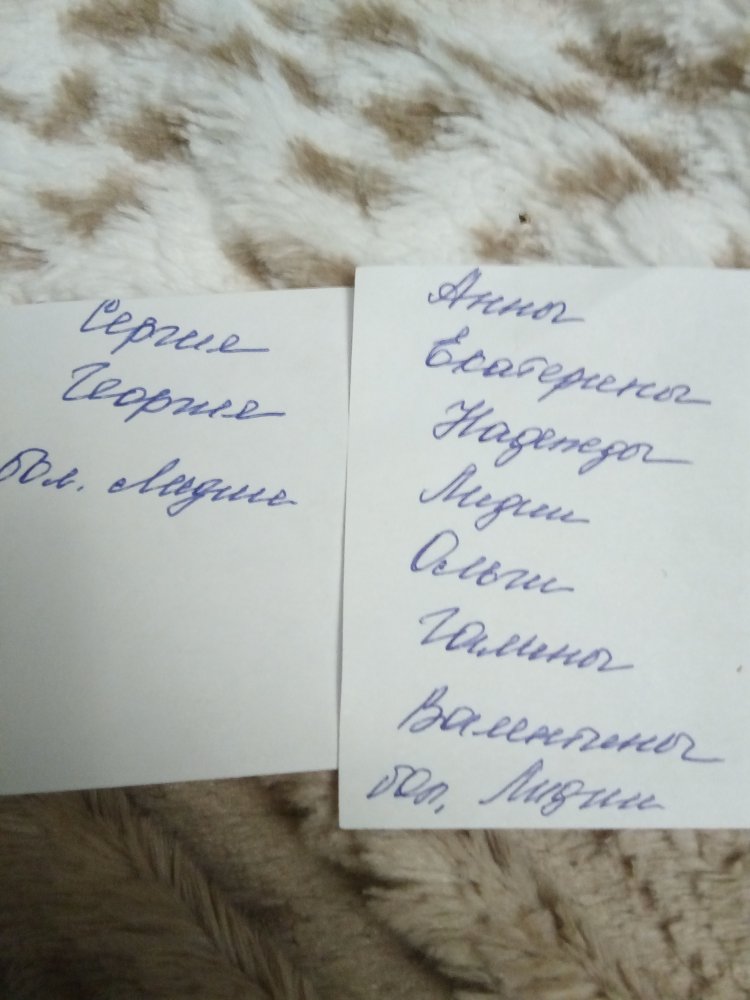 Сергия
Георгия
бол. Лидии
Анны
Екатерины
Надежды
Лидии
Ольги
Галины
Валентины
бол. Лидии